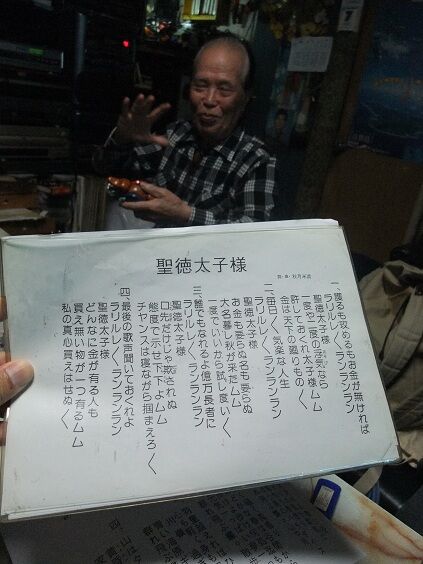 聖徳太子様
詞・曲・秋月
一、護るも攻めるもお金が無ければ
ラリルレ〱ランランラン
聖徳太子様ムム
一度や二度の浮気なら
許しておくれ太子様ムム
金は天下の廻りもの〱
二、毎日〱気楽な人生
ラリルレ〱ランランラン
聖徳太子様
お金も要らぬ名も要らぬ
大名暮し秋が来たムム
一度でいいから試し度い〱
三、誰でもなれるよ億万長者に
ラリルレ〱ランランラン
聖徳太子様
口先だけじゃ欺されぬ
度で示せ下よムム
チャンスは寝ながら掴まえろ〱
四、最後の歌声聞いておくれよ
ラリルレ〱ランランラン
聖徳太子様
どんなに金が有る人も
買え無い物が一つ有るムム
私の真心買えはせぬ〱
7